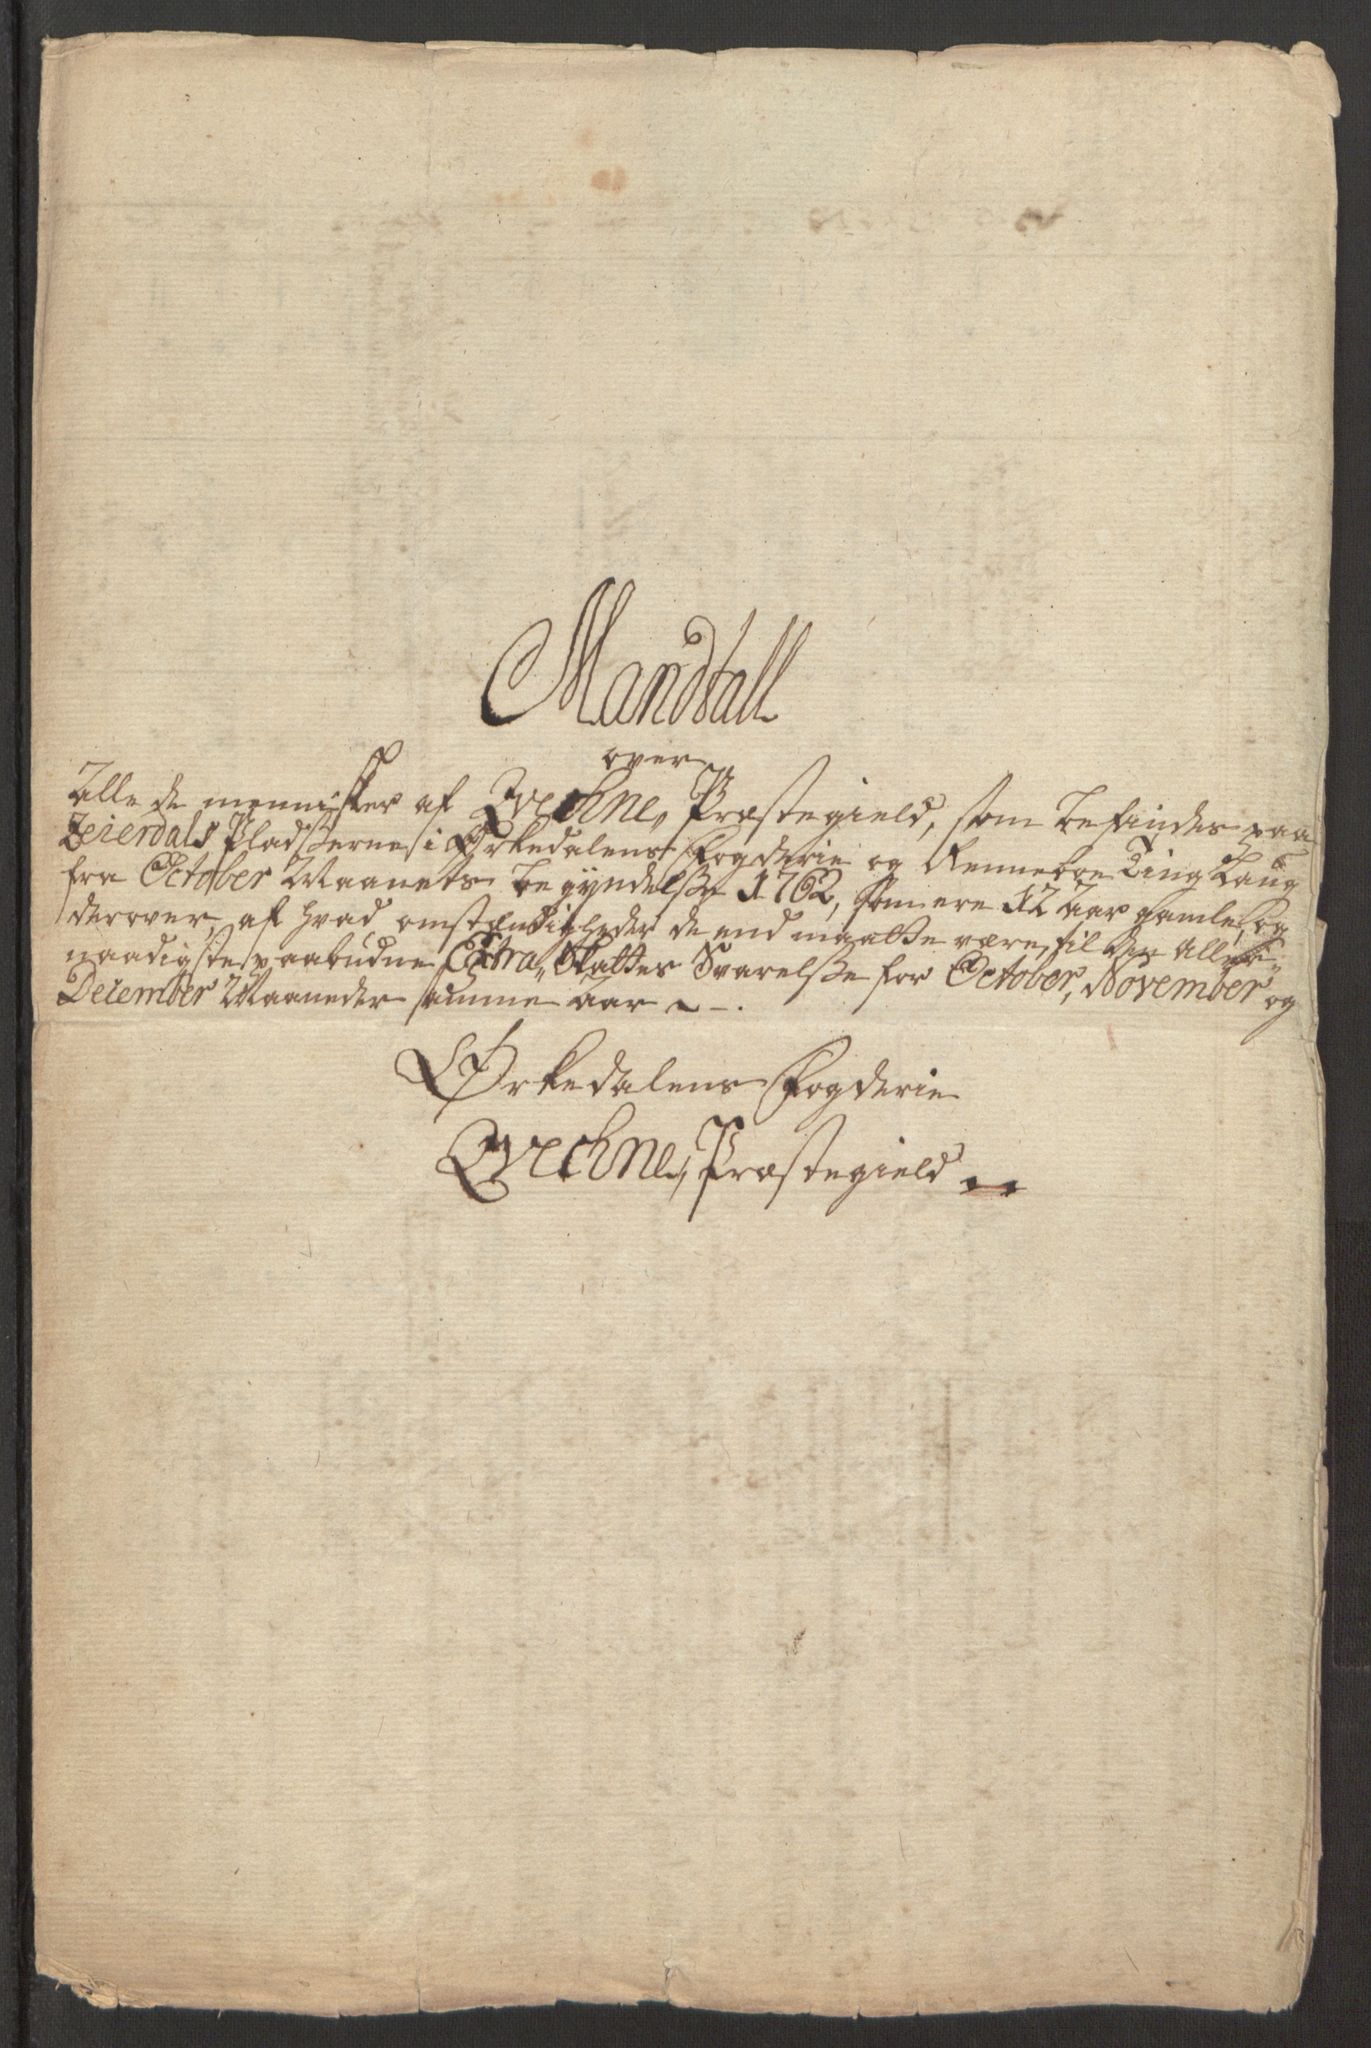 Mandtall
over
Alle de mennisker af Qvechne, Præstegield, som befindes paa
Leierdals Pladsserne i Ørkedalens Fogderie og Renneboe Ting Laug
fra October Maanets begyndelsse 1762, som ere 12 Aar gamle, og
derover, af hvad omstændigheder de end maatte være, til den Aller„
naadigste paabudne Extra„ Skattes Svarelsse for October, November og
December Maaneder samme Aar
Ørkedalens Fogderie
Qvechne, Præstegield